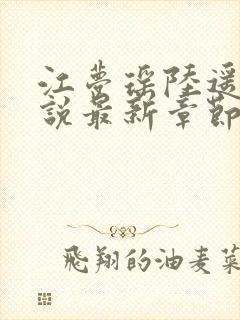 江梦瑶陆遥
說最新章節
飛翔的油麦菜